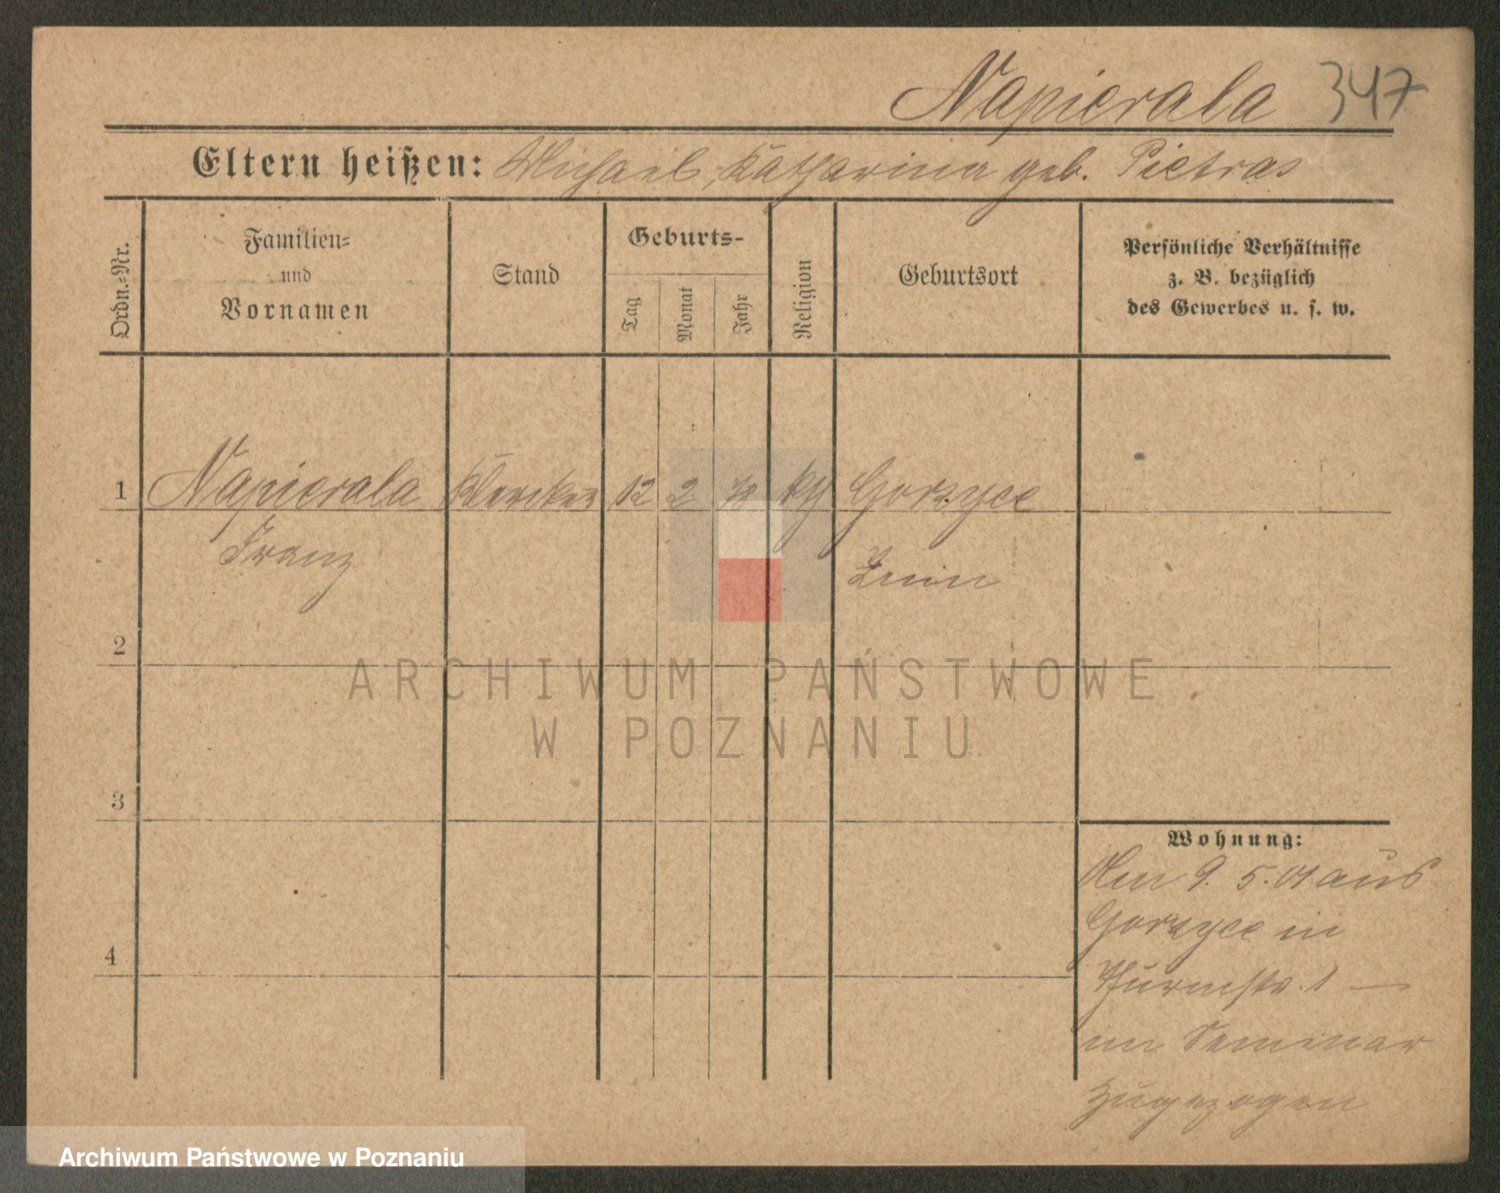 Napierala 347
Eltern heißen: Michael, Katharina geb. Pietras
Ordn.-Nr.
Familien-
und
Vornamen
Stand
Geburts-
Tag
Monat
Jahr
Religion
Geburtsort
Persönliche Verhältnisse
z. B. bezüglich
des Gewerbes u. s. w.
1 Napierala 12 2 Gorzyce
Franz Znin
2
ARCHIWUM PAŃSTWOWE
W POZNANIU
3
Wohnung:
Am 9. 5. 01 aus
4 Gorzyce in
Thurmstr. 1 —
im Seminar
zugezogen
Archiwum Państwowe w Poznaniu